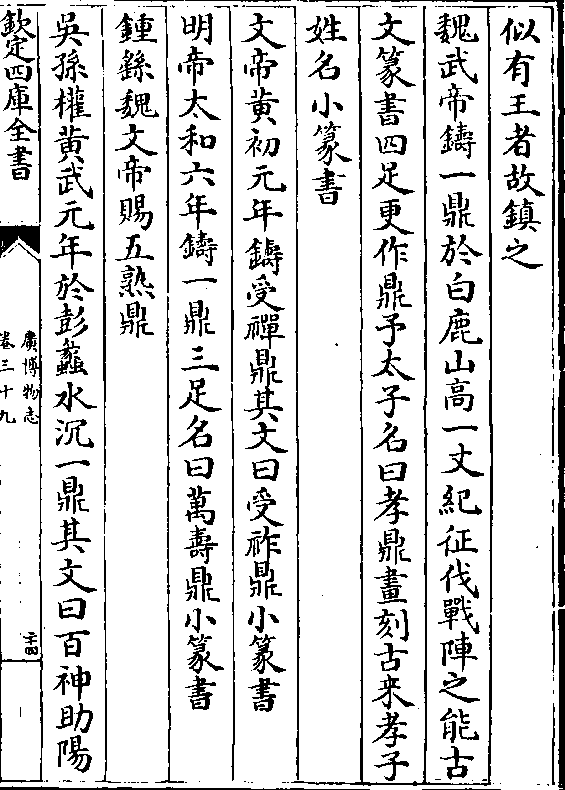 似有王者故鎮之
魏武帝鑄一鼎於白鹿山高一丈紀征伐戰陣之能古
文篆書四足更作鼎予太子名曰孝鼎畫刻古来孝子
姓名小篆書
文帝黄初元年鑄受禪鼎其文曰受祚鼎小篆書
明帝太和六年鑄一鼎三足名曰萬壽鼎小篆書
鍾繇魏文帝賜五熟鼎
吳孫權黄武元年於彭蠡水沉一鼎其文曰百神助陽
欽定四庫全書
廣博物志
卷三十九
二十四